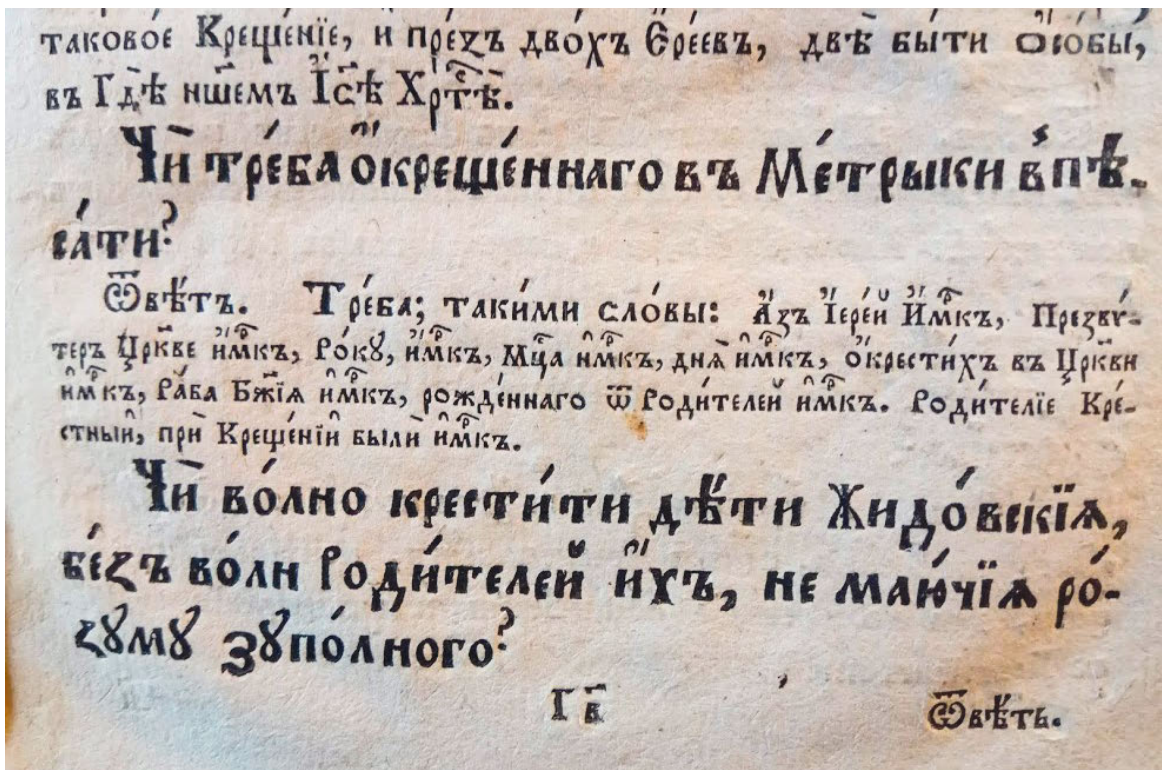 таковоє Крещéнїе, и прéзъ двóхъ Єрéевъ, двѣ быти ѻсобы,
въ Гдⷭ҇ѣ нш҃емъ І҆с҃ѣ Хрⷭ҇тѣ̀.
Чѝ трéба ѻ҆крещéннаго въ Мéтрыки в̾пѣ-
сáти?
Ѿвѣ́тъ. Трéба; такúми слóвы: А҆́зъ І҆ерéй И҆м̑къ, Презвѵ́-
теръ Цр҃кве и҆м̑къ, Рóкꙋ, и҆м̑къ, Мц҃а и҆м̑къ, дня̀ и҆м̑къ, ѻ҆крестúхъ въ Цр҃кви
и҆м̑къ, Рáба Бж҃їя и҆м̑къ, рождéннаго ѿ Родúтелей и҆м̑къ. Родúтелїе Крé-
стныи, прѝ Крещéнїи былѝ и҆м̑къ.
Чѝ вóлно крестúти дѣ́ти Жидóвскїѧ,
бéзъ вóли Родúтелей и҆́хъ, не маю́чїѧ рó-
зꙋмꙋ зꙋпóлного?
Г в҃ Ѿвѣ́тъ.